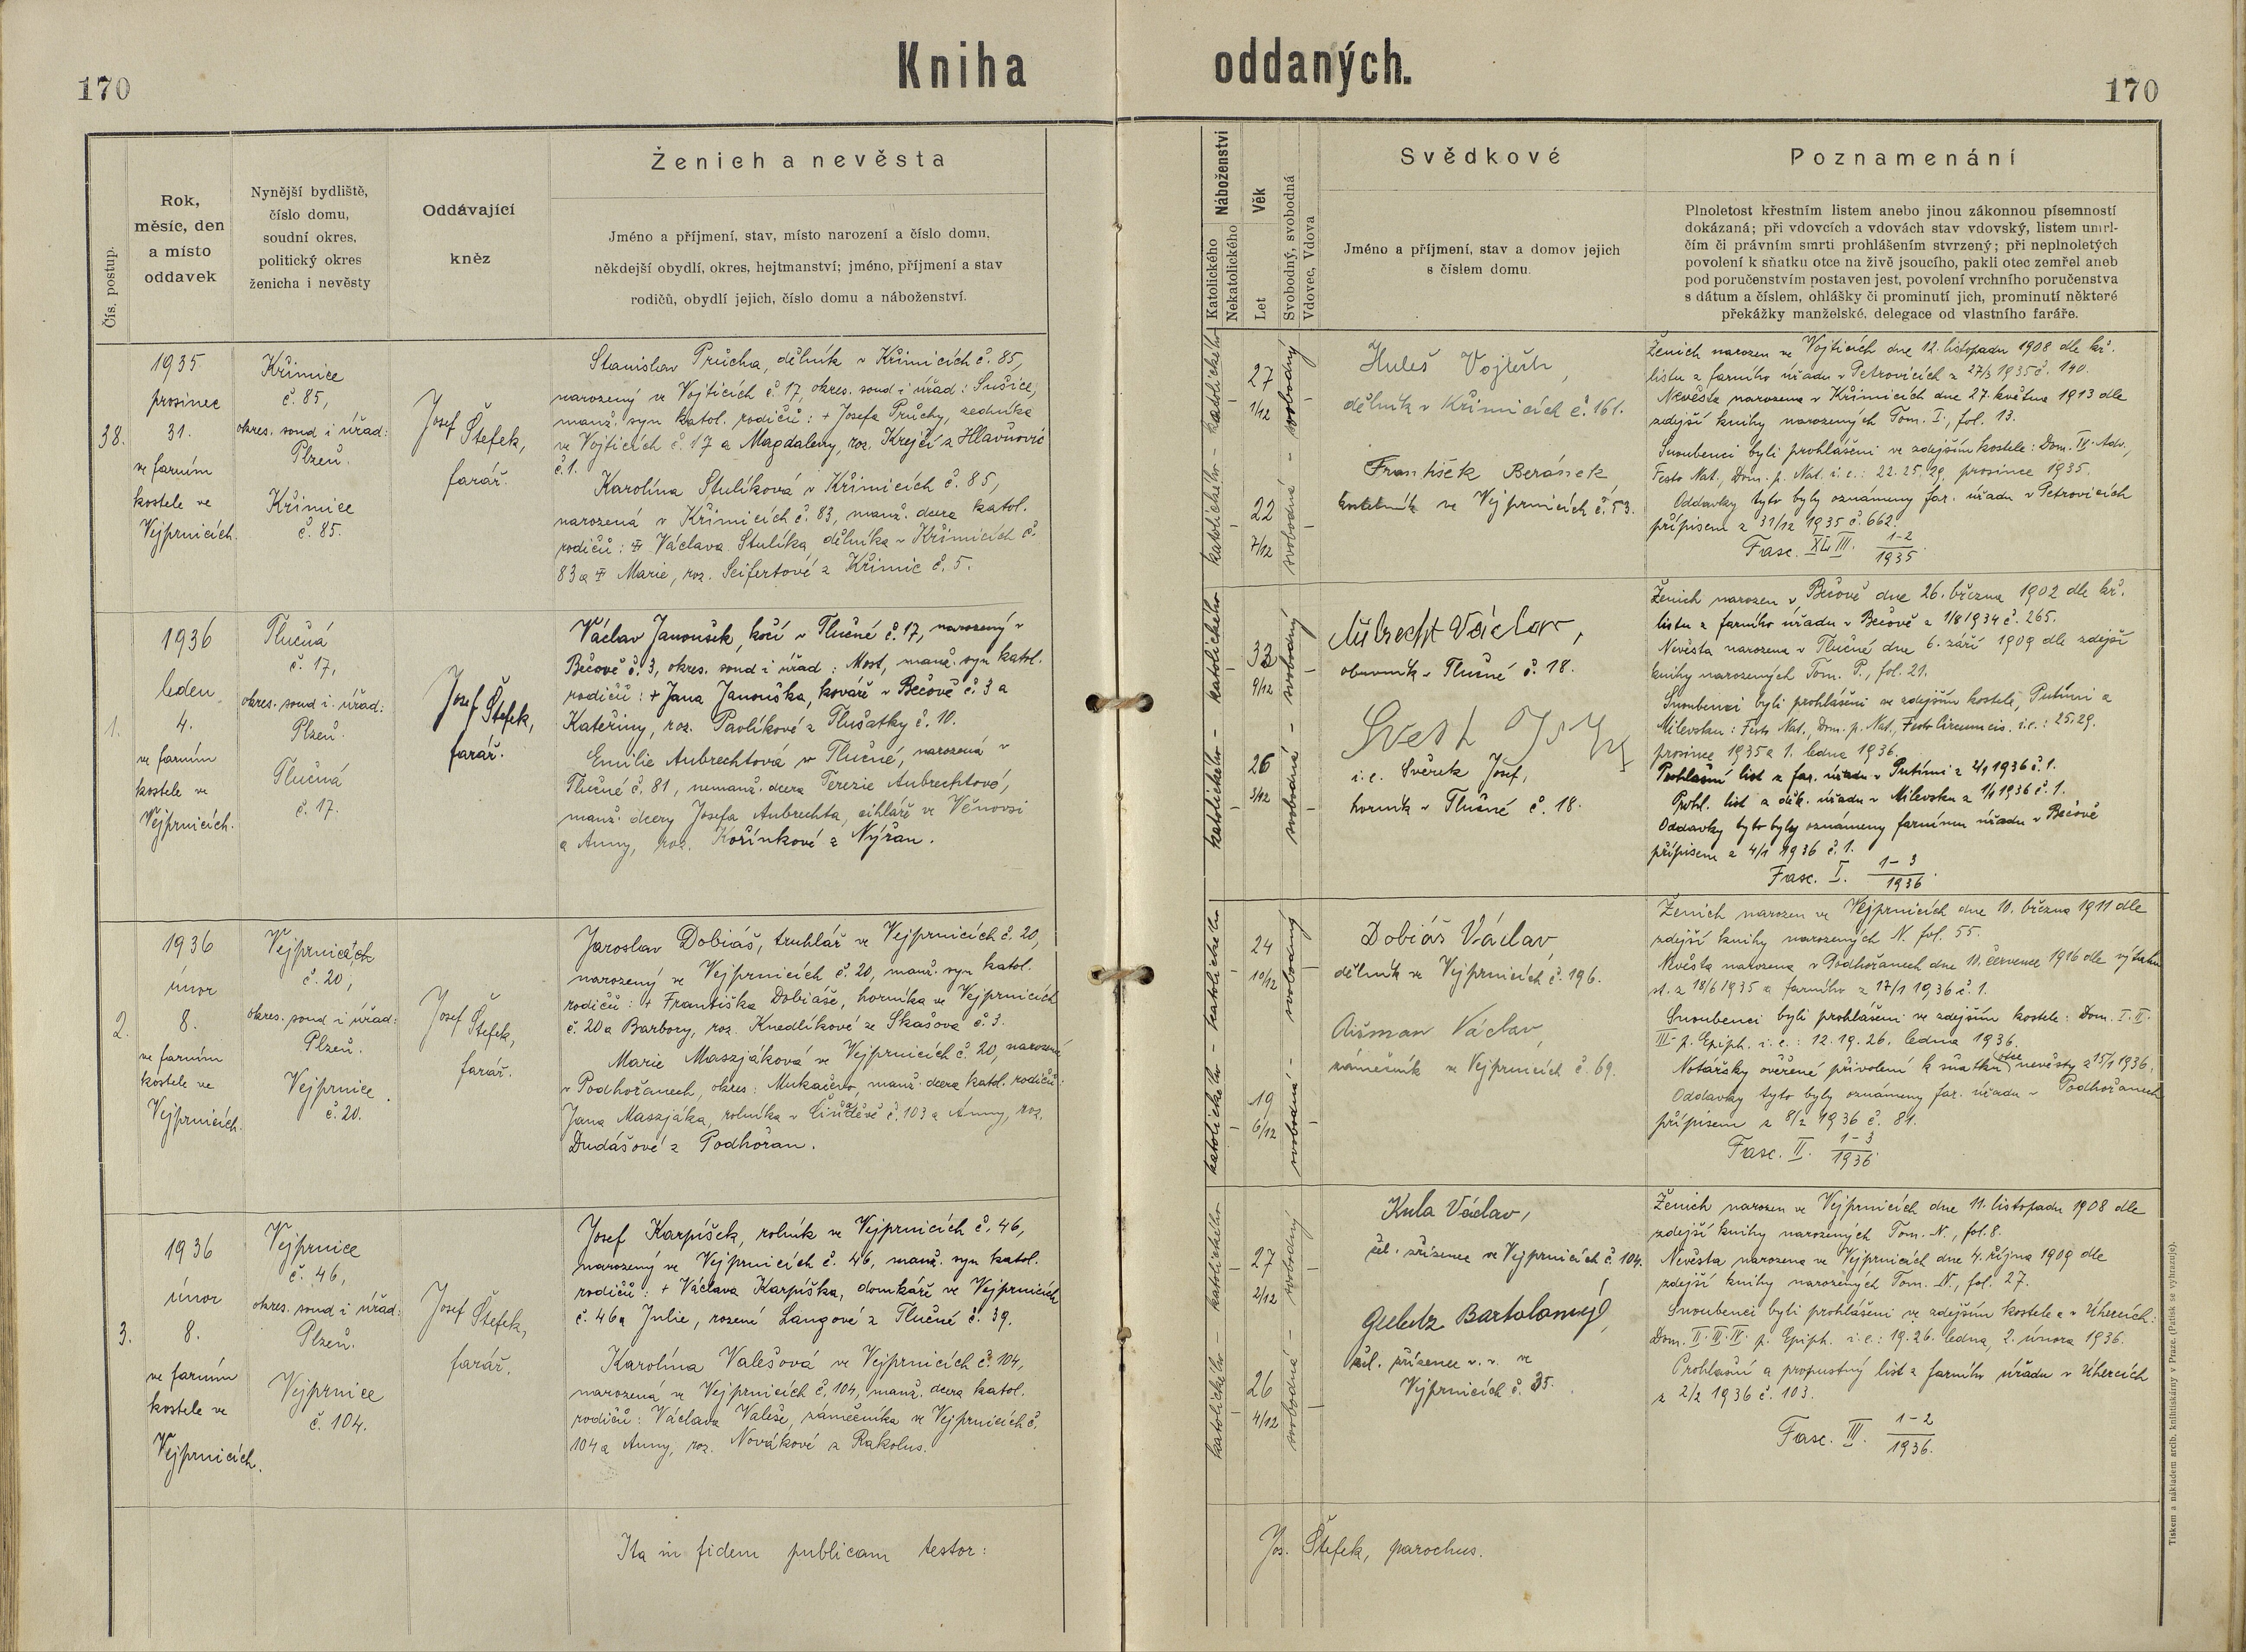 170
Kniha oddaných.
170
Čís. postup.
Rok,
měsíc, den
a místo
oddavek
Nynější bydliště,
číslo domu,
soudní okres,
politický okres
ženicha i nevěsty
Oddávající
kněz
Ženich a nevěsta
Jméno a příjmení, stav, místo narození a číslo domu,
někdejší obydlí, okres, hejtmanství; jméno, příjmení a stav
rodičů, obydlí jejich, číslo domu a náboženství.
Náboženství
Katolického
Nekatolického
Věk
Let
Svobodný, svobodná
Vdovec, Vdova
Svědkové
Jméno a příjmení, stav a domov jejich
s číslem domu.
Poznamenání
Plnoletost křestním listem anebo jinou zákonnou písemností
dokázaná; při vdovcích a vdovách stav vdovský, listem umrl-
čím či právním smrti prohlášením stvrzený; při neplnoletých
povolení k sňatku otce na živě jsoucího, pakli otec zemřel aneb
pod poručenstvím postaven jest, povolení vrchního poručenstva
s dátum a číslem, ohlášky či prominutí jich, prominutí některé
překážky manželské, delegace od vlastního faráře.
38.
1935
prosinec
31.
ve farním
kostele ve
Vejprnicích.
Křimice
č. 85,
okres. soud i úřad:
Plzeň.
Křimice
č. 85.
Josef Štefek,
farář.
Stanislav Průcha, dělník v Křimicích č. 85,
narozený ve Vojticích č. 17, okres. soud i úřad: Sušice,
manž. syn katol. rodičů: + Josefa Průchy, zedníka
ve Vojticích č. 17 a Magdaleny, roz. Krejčí z Hlavňovic
č. 1.
Karolína Stulíková v Křimicích č. 85,
narozená v Křimicích č. 83, manž. dcera katol.
rodičů: + Václava Stulíka, dělníka v Křimicích č.
83 a + Marie, roz. Seifertové z Křimic č. 5.
katolického - katolického
27
1/12
22
7/12
svobodný
svobodná
Huleš Vojtěch,
dělník v Křimicích č. 161.
František Beránek
ve Vejprnicích č. 53.
Ženich narozen ve Vojticích dne 12. listopadu 1908 dle kř.
listu z farního úřadu v Petrovicích z 27/5 1935 č. 140.
Nevěsta narozena v Křimicích dne 27. května 1913 dle
zdejší knihy narozených Tom. I., fol. 13.
Snoubenci byli prohlášeni ve zdejším kostele: Dom. IV. Adv.,
Festo Nat., Dom. p. Nat. i. e.: 22. 25. 29. prosince 1935.
Oddavky tyto byly oznámeny far. úřadu v Petrovicích
přípisem z 31/12 1935 č. 662.
Fasc. XLIII. 1-2
1935.
1.
1936
leden
4.
ve farním
kostele ve
Vejprnicích.
Tlučná
č. 17,
okres. soud i. úřad:
Plzeň.
Tlučná
č. 17.
Josef Štefek,
farář.
Václav Janoušek, kočí v Tlučné č. 17, narozený v
Bečově č. 3, okres. soud i úřad: Most, manž. syn katol.
rodičů: + Jana Janouška, kováře v Bečově č. 3 a
Kateřiny, roz. Pavlíkové z Tlušatky č. 10.
Emilie Aubrechtová v Tlučné, narozená v
Tlučné č. 81, nemanž. dcera Terezie Aubrechtové,
manž. dcery Josefa Aubrechta, cihláře ve Věnovsi
a Anny, roz. Kořínkové z Nýřan.
katolického - katolického
33
9/12
26
3/12
svobodný
svobodná
Aubrecht Václav,
obuvník v Tlučné č. 18.
i. e. Svěrek Josef,
horník v Tlučné č. 18.
Ženich narozen v Bečově dne 26. března 1902 dle kř.
listu z farního úřadu v Bečově z 1/8 1934 č. 265.
Nevěsta narozena v Tlučné dne 6. září 1909 dle zdejší
knihy narozených Tom. P., fol. 21.
Snoubenci byli prohlášeni ve zdejším kostele, Putimi a
Milevsku: Festo Nat., Dom. p. Nat., Festo Circumcis. i. e.: 25. 29.
prosince 1935 a 1. ledna 1936.
Prohlašní list z far. úřadu v Putimi z 2/1 1936 č. 1.
Prohl. list z děk. úřadu v Milevsku z 1/1 1936 č. 1.
Oddavky tyto byly oznámeny farnímu úřadu v Bečově
přípisem z 4/1 1936 č. 1.
Fasc. I. 1-3
1936.
2.
1936
únor
8.
ve farním
kostele ve
Vejprnicích.
Vejprnicích
č. 20,
okres. soud i úřad:
Plzeň.
Vejprnice
č. 20.
Josef Štefek,
farář.
Jaroslav Dobiáš, truhlář ve Vejprnicích č. 20,
narozený ve Vejprnicích č. 20, manž. syn katol.
rodičů: + Františka Dobiáše, horníka ve Vejprnicích
č. 20 a Barbory, roz. Knedlíkové ze Skašova č. 3.
Marie Maszjáková ve Vejprnicích č. 20, narozená
v Podhořanech, okres: Mukačevo, manž. dcera katol. rodičů:
Jana Maszjáka, rolníka v č. 103 a Anny, roz.
Dudášové z Podhořan.
katolického - katolického
24
10/12
19
6/12
svobodný
svobodná
Dobiáš Václav,
dělník ve Vejprnicích č. 196.
Aišman Václav,
zámečník ve Vejprnicích č. 69.
Ženich narozen ve Vejprnicích dne 10. března 1911 dle
zdejší knihy narozených N. fol. 55.
Nevěsta narozena v Podhořanech dne 11. července 1916 dle výtahu
st. z 18/6 1935 a farního z 17/1 1936 č. 1.
Snoubenci byli prohlášeni ve zdejším kostele: Dom. I. II.
III. p. Epiph. i. e.: 12. 19. 26. ledna 1936.
Notářsky ověřené přivolení k sňatku otce nevěsty z 15/1 1936.
Oddavky tyto byly oznámeny far. úřadu v Podhořanech
přípisem z 8/2 1936 č. 81.
Fasc. II. 1-3
1936.
3.
1936
únor
8.
ve farním
kostele ve
Vejprnicích.
Vejprnice
č. 46,
okres. soud i úřad:
Plzeň.
Vejprnice
č. 104.
Josef Štefek,
farář.
Josef Karpíšek, rolník ve Vejprnicích č. 46,
narozený ve Vejprnicích č. 46, manž. syn katol.
rodičů: + Václava Karpíška, domkáře ve Vejprnicích
č. 46 a Julie, rozené Langové z Tlučné č. 39.
Karolína Valešová ve Vejprnicích č. 104,
narozená ve Vejprnicích č. 104, manž. dcera katol.
rodičů: Václava Valeše, zámečníka ve Vejprnicích č.
104 a Anny, roz. Novákové z Rakolus.
katolického - katolického
27
2/12
26
4/12
svobodný
svobodná
Kula Václav,
žel. zřízenec ve Vejprnicích č. 104.
Bartoloměj,
žel. zřízenec v. v. ve
Vejprnicích č. 35.
Ženich narozen ve Vejprnicích dne 11. listopadu 1908 dle
zdejší knihy narozených Tom. N., fol. 8.
Nevěsta narozena ve Vejprnicích dne 4. října 1909 dle
zdejší knihy narozených Tom. N., fol. 27.
Snoubenci byli prohlášeni ve zdejším kostele a v Úhercích:
Dom. II. III. IV. p. Epiph. i. e.: 19. 26. ledna, 2. února 1936.
Prohlašní a propustný list z farního úřadu v Úhercích
z 2/2 1936 č. 103.
Fasc. III. 1-2
1936.
Ita in fidem publicam testor:
Jos. Štefek, parochus.
Tiskem a nákladem arcib. knihtiskárny v Praze. (Patisk se vyhrazuje).